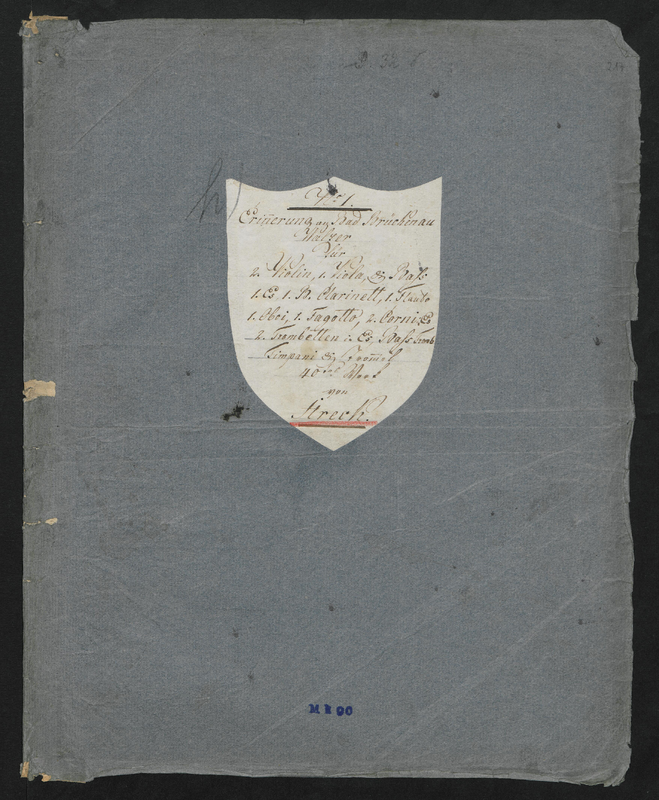 h)
No 1.
Erin̄erung an Bad Brückenau
Walzer
für
2. Violin, 1. Viola, & Bass
1. Es 1. B. Clarinett, 1. Flauto
1. Oboi, 1. Fagotto, 2. Corni Es
2. Trombetten in Es, Bass Tromb
Timpani & Trom̄el
40tes Werk
von
Streck.
M k 90